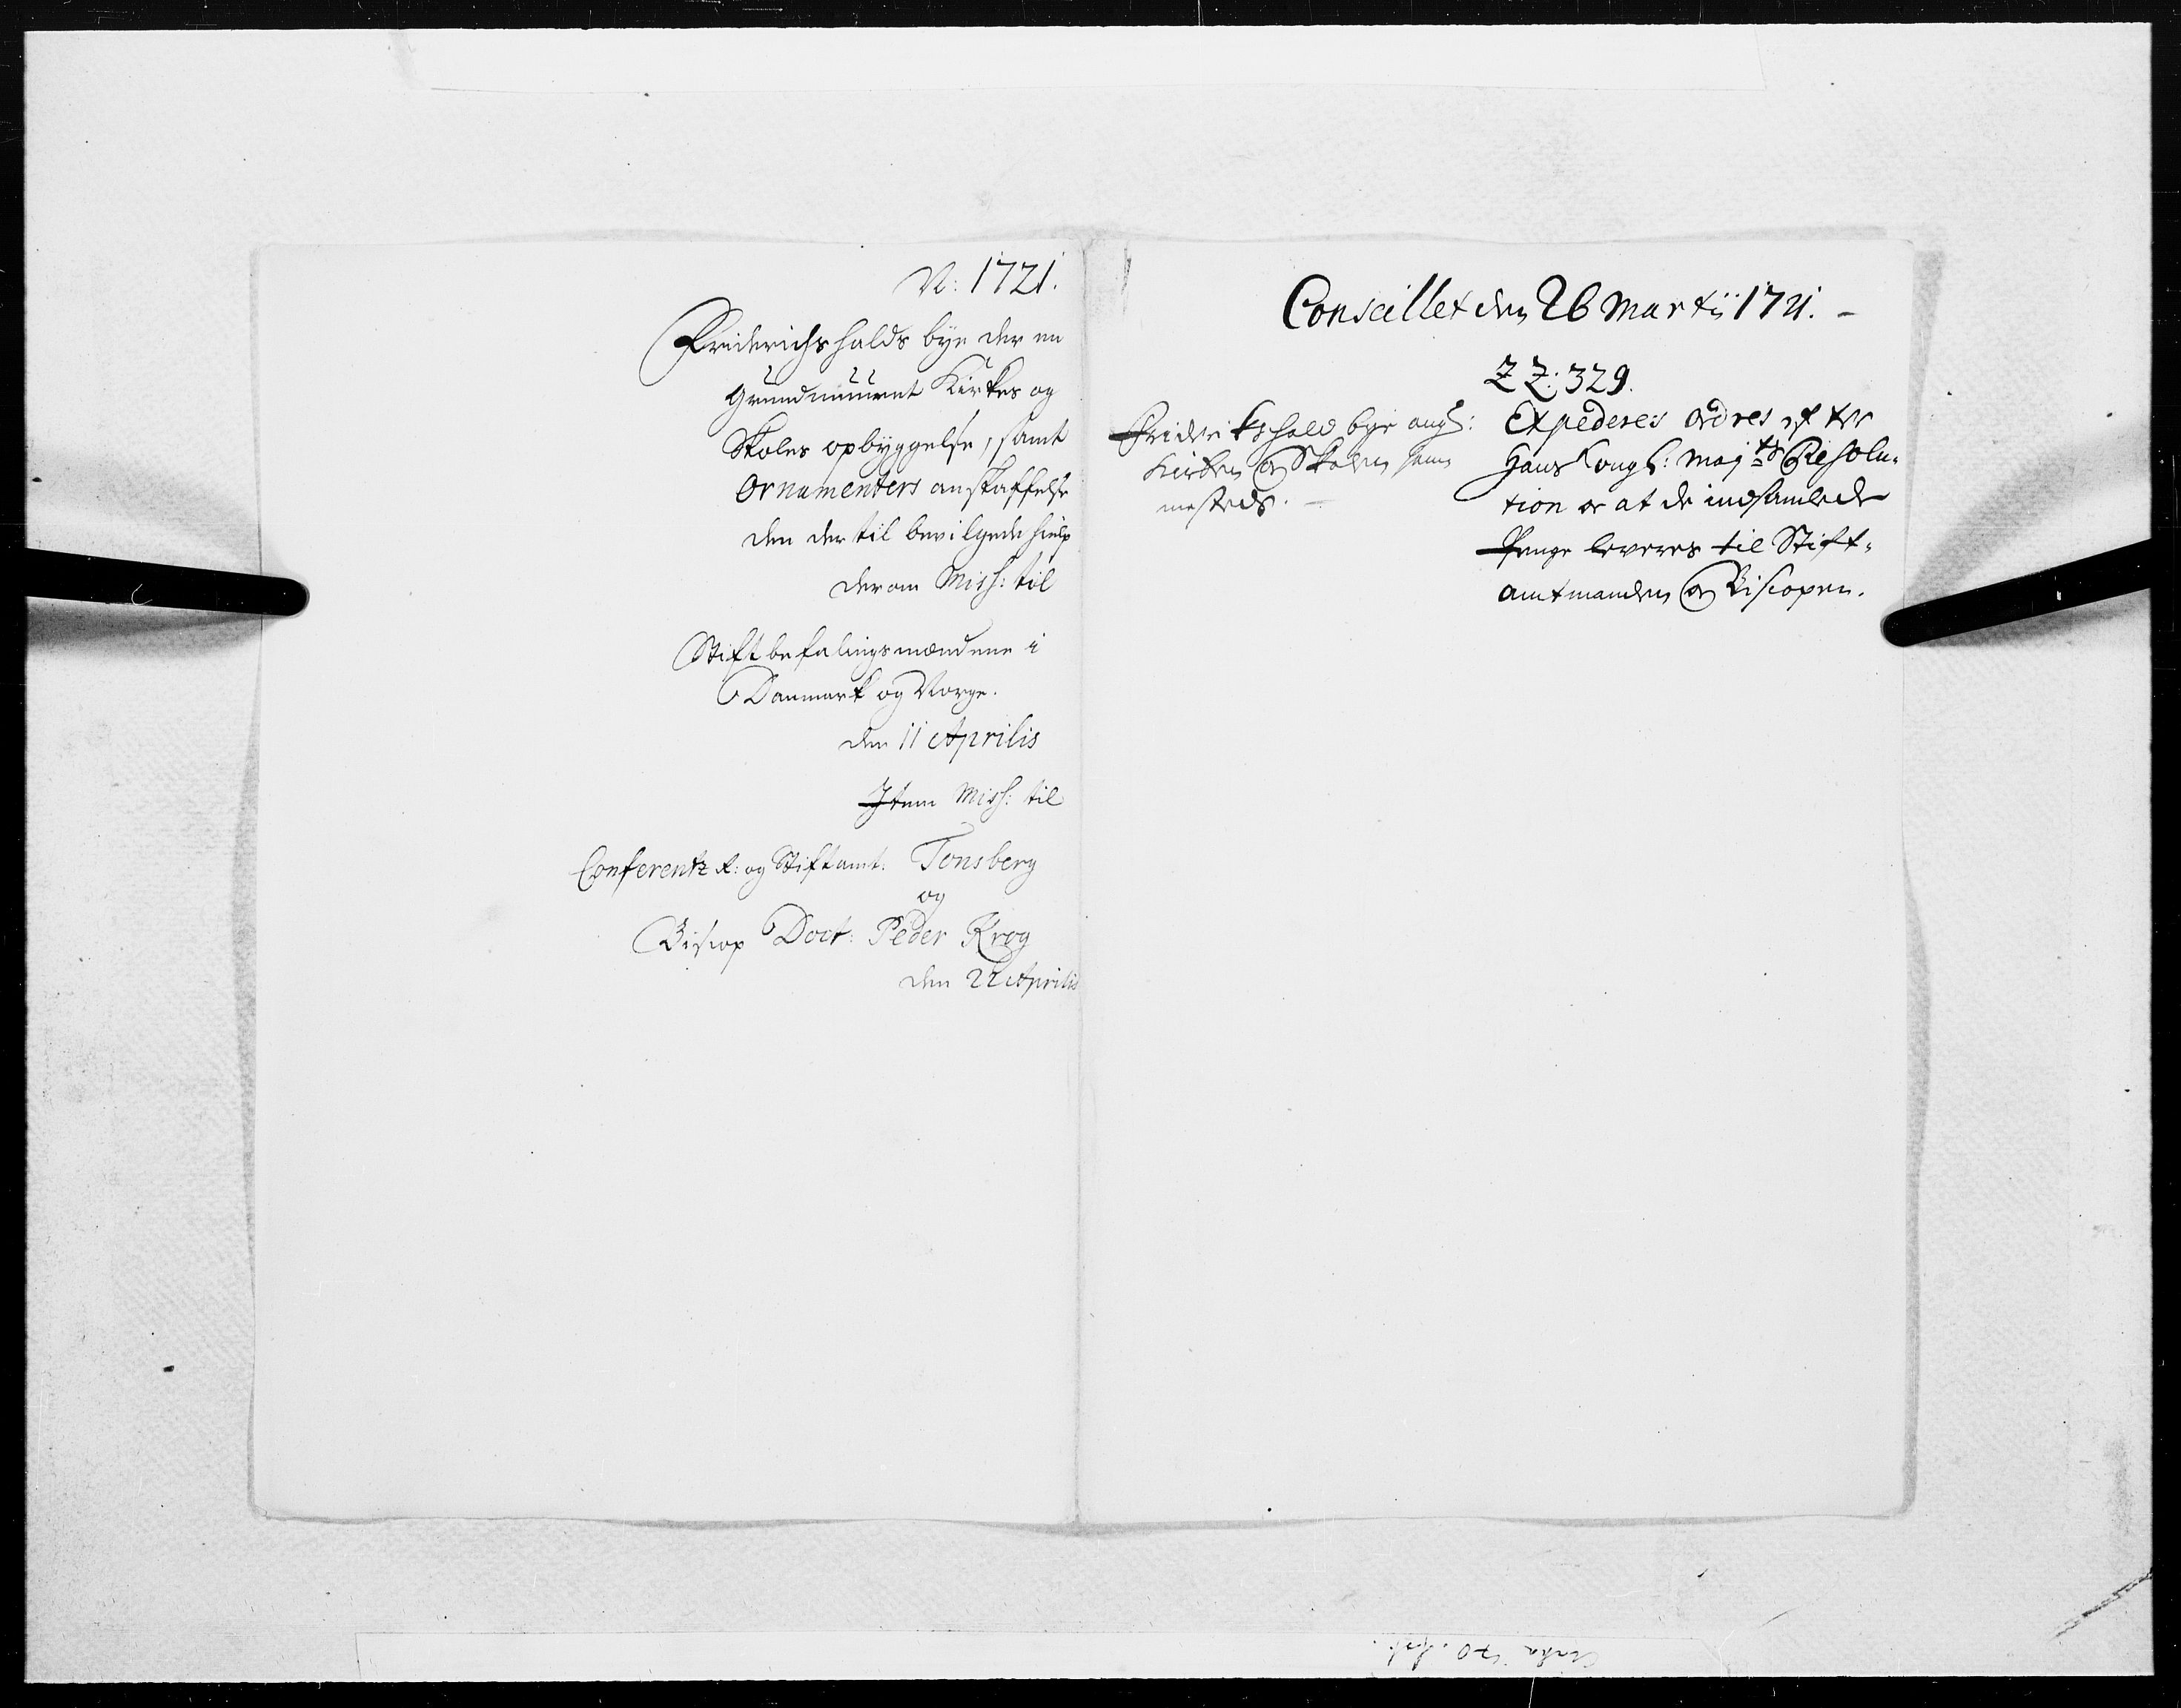 N: 1721.
Friderichshalds bye der en
Grundmuuret Kirkes og
Skoles opbyggelse, samt
Ornamenters anskaffelse
den der til bevilgede hielp
derom Miss: til
Stiftbefalingsmændene i
Danmark og Norge.
den 11 Aprilis
Item Miss: til
Conferentz R: og Stiftamt: Tonsberg
og
Biscop Doct: Peder Krog
den 22 Aprilis
Conseillet den 26 Martii 1721. -
ZZ: 329.
Friderikshald bye ang:
Kirken og Skolen sam
mesteds. -
Expederes ordres efter
Hans Kongl: Maj:ts Resolu-
tion og at de indsamlede
Penge leveres til Stift-
amtmanden og Biscopen.